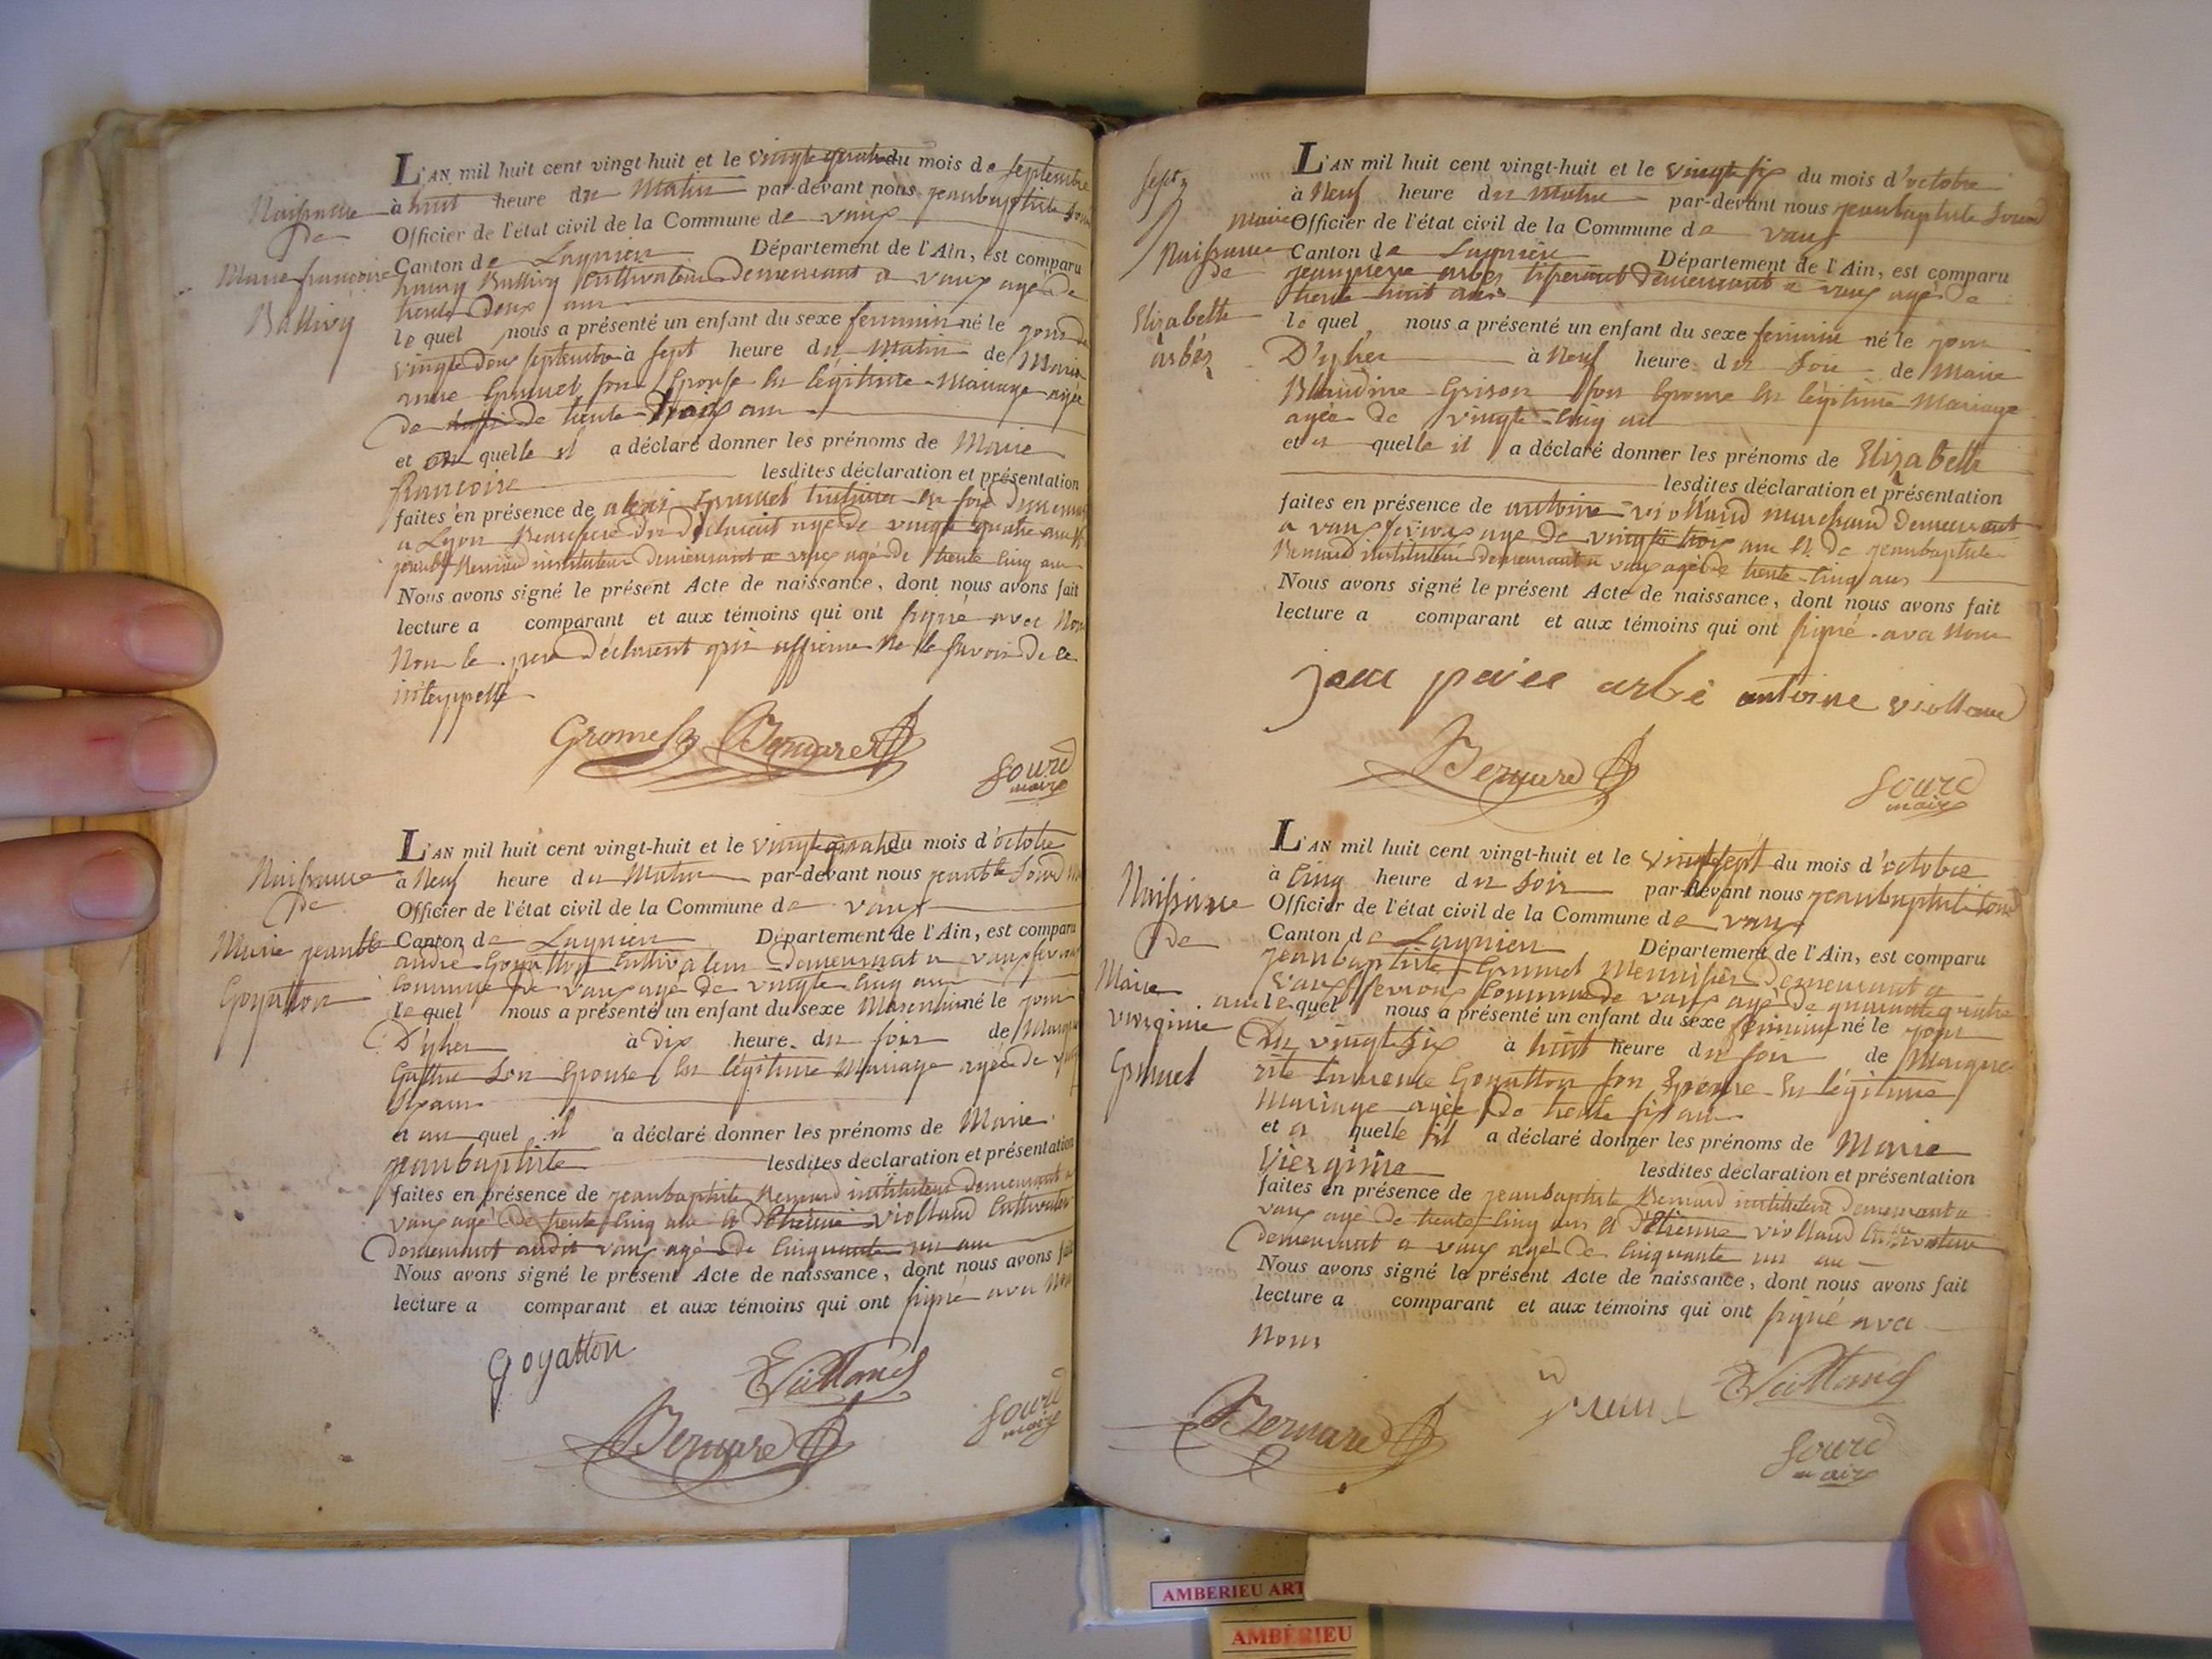 Naissance
de
Marie françoise
Ballivy
L'AN mil huit cent vingt-huit et le vingt quatre du mois de septembre
à huit heure du Matin par-devant nous jeanbaptiste
Officier de l'état civil de la Commune de vaux
Canton de Lagnieu Département de l'Ain, est comparu
Ballivy Cultivateur demeurant a vaux agé de
trente deux ans
le quel nous a présenté un enfant du sexe feminin né le jour de
vingt deux septembre à sept heure du Matin de Marie
anne Grumel son Epouse en légitime Mariage agée
de trente trois ans
et quelle il a déclaré donner les prénoms de Marie
françoise lesdites déclaration et présentation
faites en présence de Grumel
a Lyon Beaufrere du déclarant agé de vingt quatre ans
Bernard instituteur demeurant a vaux agé de trente cinq ans
Nous avons signé le présent Acte de naissance, dont nous avons fait
lecture a comparant et aux témoins qui ont signé avec Nous
Non le pere déclarant qui a affirmé Ne le savoir de ce
interppellé
Bernard
Sourd
maire
Naissance
de
Marie jeanbte
Goyatton
L'AN mil huit cent vingt-huit et le vingt quatre du mois d'octobre
à Neuf heure du Matin par-devant nous jeanbte Sourd
Officier de l'état civil de la Commune de vaux
Canton de Lagnieu Département de l'Ain, est comparu
andré Goyatton Cultivateur demeurant a vaux
commune de vaux agé de vingt cinq ans
le quel nous a présenté un enfant du sexe Masculin né le jour
D'yher à dix heure du soir de
son Epouse en légitime Mariage agée de
six ans
et au quel il a déclaré donner les prénoms de Marie
jeanbaptiste lesdites déclaration et présentation
faites en présence de jeanbaptiste Bernard instituteur demeurant a
vaux agé de trente cinq ans et d'Etienne Violland Cultivateur
demeurant audit vaux agé de cinquante un ans
Nous avons signé le présent Acte de naissance, dont nous avons fait
lecture a comparant et aux témoins qui ont signé avec Nous
goyatton
EViolland
Bernard
Sourd
maire
Naissance
de
Elizabeth
arbéz
L'AN mil huit cent vingt-huit et le vingt six du mois d'octobre
à Neuf heure du Matin par-devant nous jeanbaptiste Sourd
maire Officier de l'état civil de la Commune de vaux
Canton de Lagnieu Département de l'Ain, est comparu
jeanpierre arbéz tisserand demeurant a vaux agé de
trente huit ans
le quel nous a présenté un enfant du sexe feminin né le jour
D'yher à Neuf heure du Soir de Marie
Blandine Grison son Epouse en légitime Mariage
agée de vingt cinq ans
et a quelle il a déclaré donner les prénoms de Elizabeth
lesdites déclaration et présentation
faites en présence de antoine violland marchand demeurant
a vaux agé de vingt trois ans et de jeanbaptiste
Bernard instituteur demeurant a vaux agé de trente cinq ans
Nous avons signé le présent Acte de naissance, dont nous avons fait
lecture a comparant et aux témoins qui ont signé avec Nous
antoine violland
Bernard
Sourd
maire
Naissance
de
Marie
virginie
Grumel
L'AN mil huit cent vingt-huit et le vingt sept du mois d'octobre
à Cinq heure du Soir par-devant nous jeanbaptiste Sourd
Officier de l'état civil de la Commune de vaux
Canton de Lagnieu Département de l'Ain, est comparu
jeanbaptiste Grumel Menuisier demeurant a
commune de vaux agé de quarante quatre
ans le quel nous a présenté un enfant du sexe feminin né le jour
Du vingt six à huit heure du soir de Margue
rite Goyatton son Epouse en légitime
Mariage agée de trente six ans
et a quelle il a déclaré donner les prénoms de Marie
Vierginie lesdites déclaration et présentation
faites en présence de jeanbaptiste Bernard instituteur demeurant a
vaux agé de trente cinq ans et d'Etienne violland Cultivateur
demeurant a vaux agé de cinquante un ans
Nous avons signé le présent Acte de naissance, dont nous avons fait
lecture a comparant et aux témoins qui ont signé avec
Nous
EViolland
Bernard
Sourd
maire
AMBERIEU ART
AMBERIEU